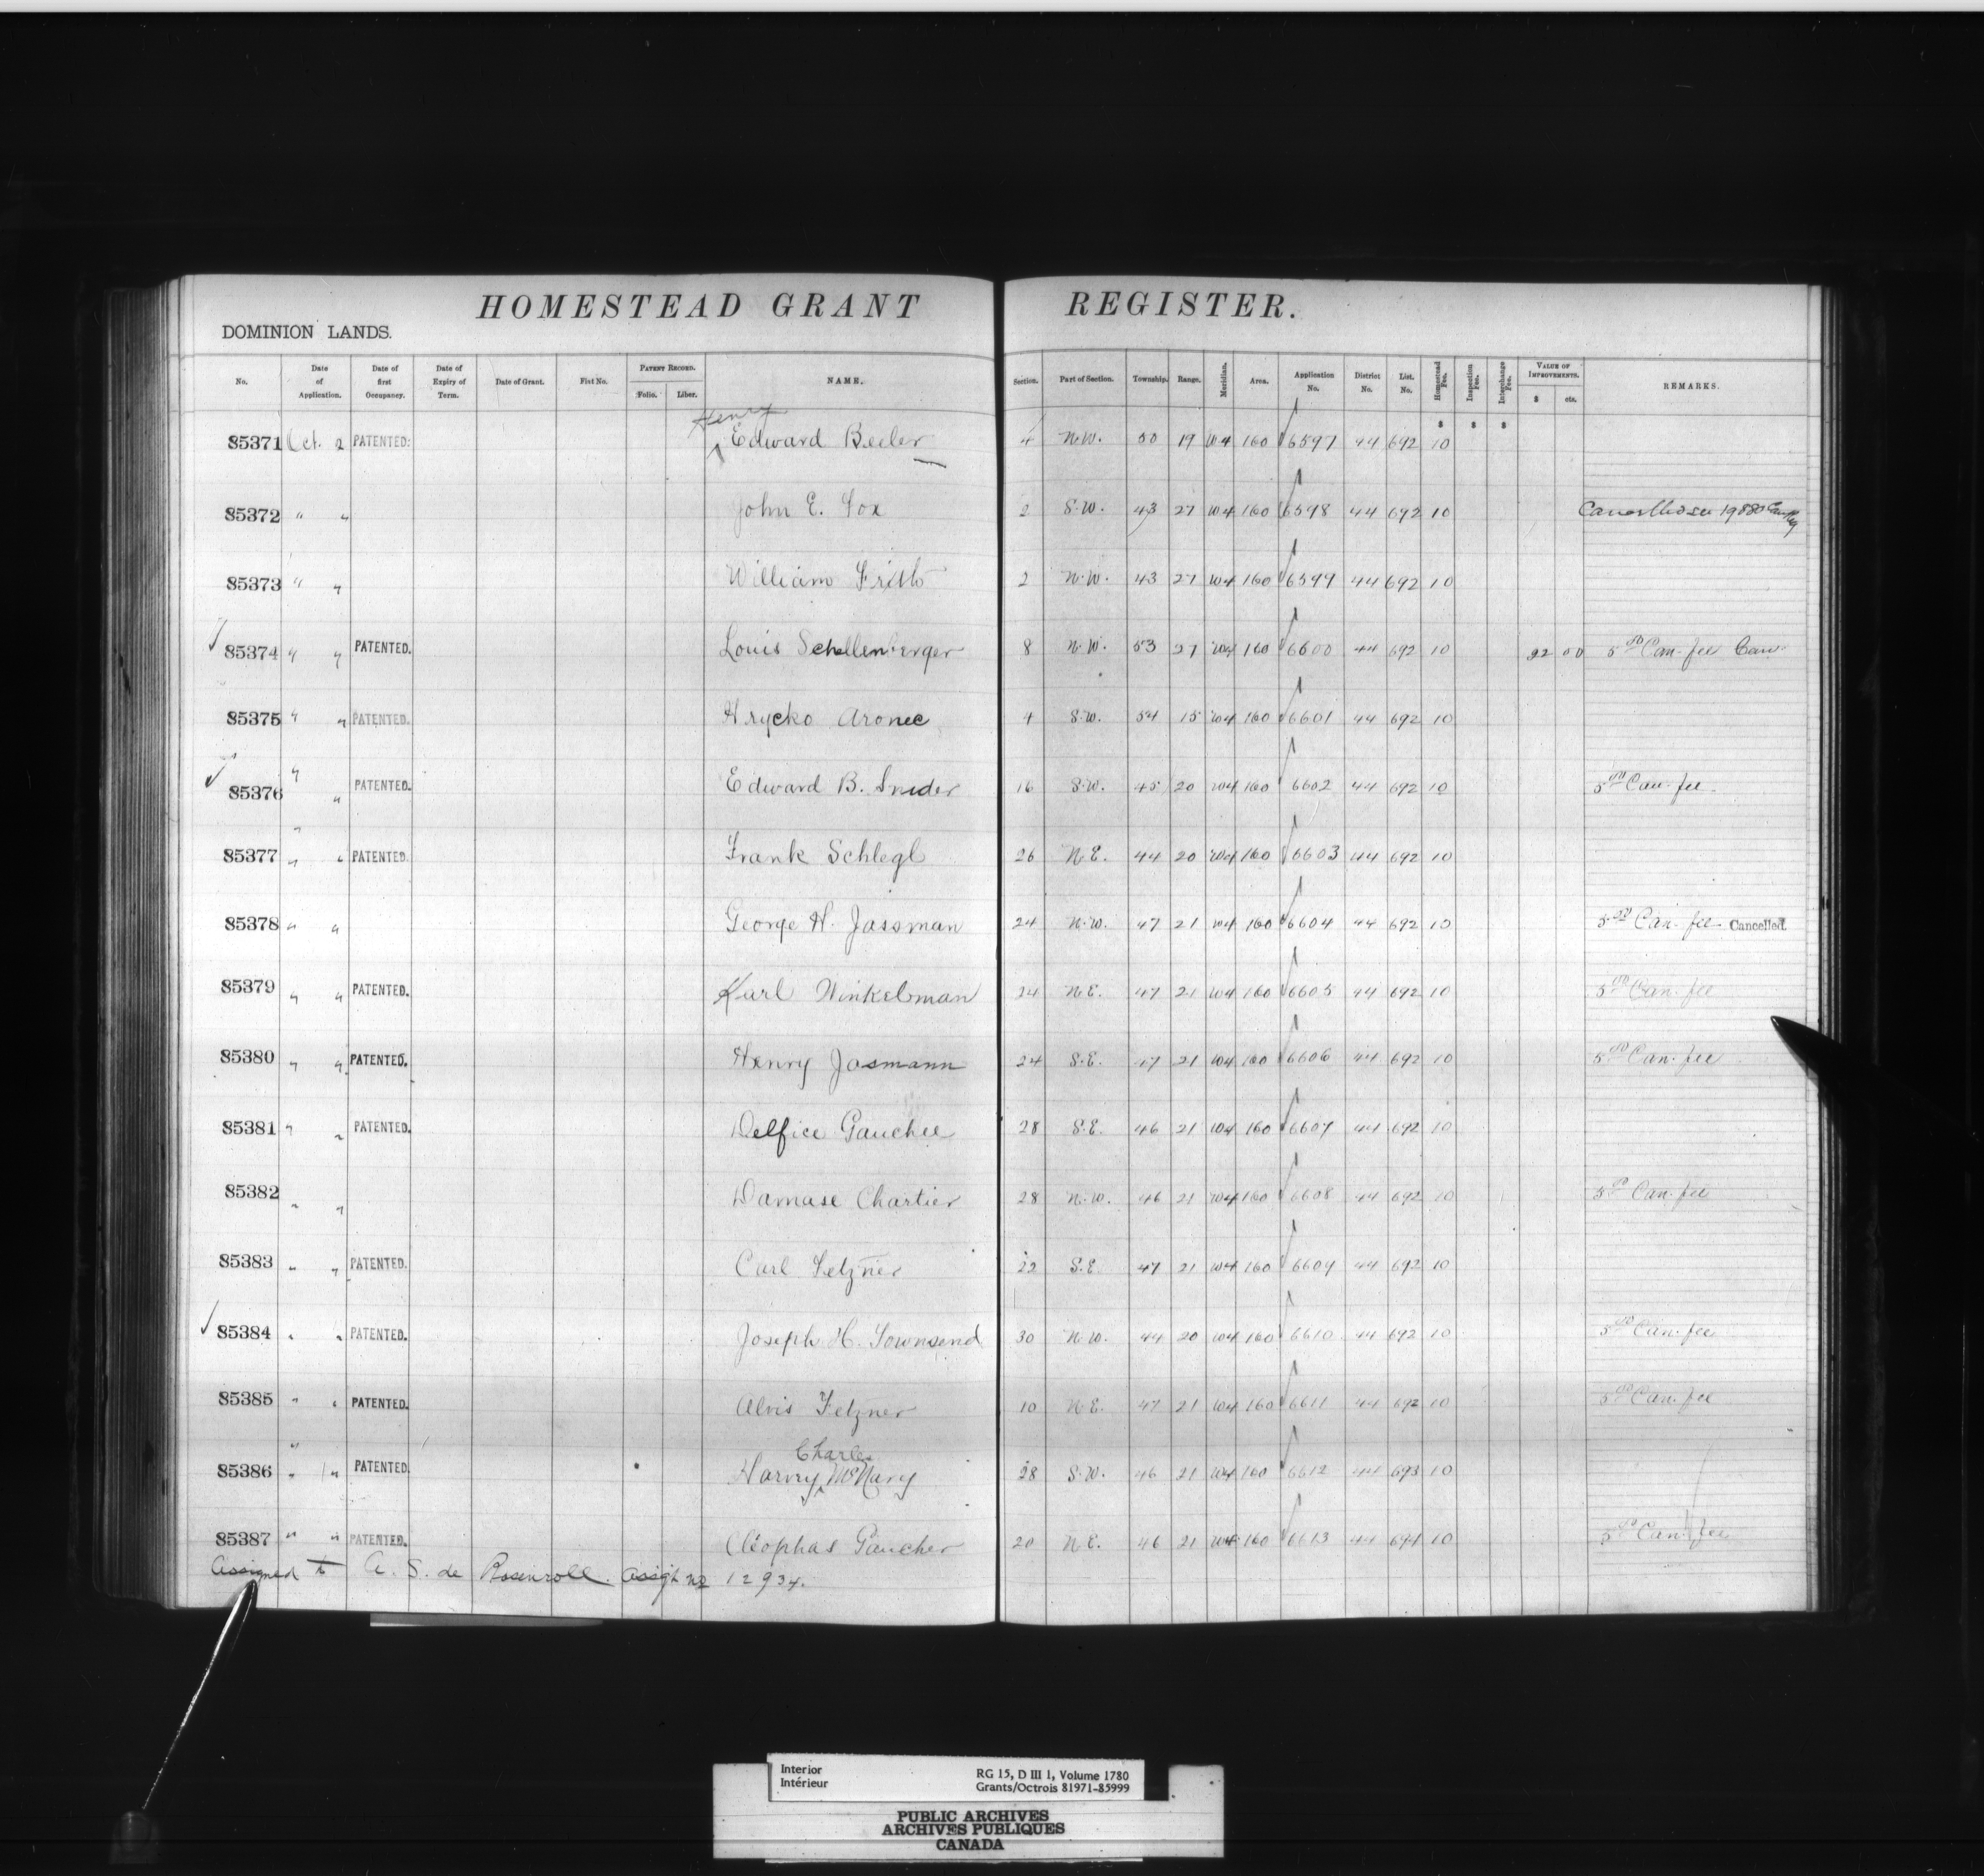 HOMESTEAD GRANT REGISTER.
DOMINION LANDS.
No. Date of Application. Date of first Occupancy. Date of Expiry of Term. Date of Grant. Fiat No. PATENT RECORD. Folio. Liber. NAME. Section. Part of Section. Township. Range. Meridian. Area. Application No. District No. List. No. Homestead Fee. Inspection Fee. Interchange Fee. VALUE OF IMPROVEMENTS. $ cts. REMARKS.
$ $ $
Henry
85371 Oct. 2 PATENTED. Edward Beeler 4 N.W. 50 19 W4 160 6597 44 692 10
85372 " " John E. Fox 2 S.W. 43 27 W4 160 6598 44 692 10 19880
85373 " " William Frith 2 N.W. 43 27 W4 160 6599 44 692 10
85374 " " PATENTED. Louis Schellenberger 8 N.W. 53 27 W4 160 6600 44 692 10 22 00 5.00 Can. fee Can.
85375 " " PATENTED. Hrycko Aronec 4 S.W. 54 15 W4 160 6601 44 692 10
85376 " " PATENTED. Edward B. Snider 16 S.W. 45 20 W4 160 6602 44 692 10 5.00 Can. fee
85377 " " PATENTED. Frank Schlegl 26 N.E. 44 20 W4 160 6603 44 692 10
85378 " " George H. Jassman 24 N.W. 47 21 W4 160 6604 44 692 10 5.00 Can. fee Cancelled.
85379 " " PATENTED. Karl Winkelman 24 N.E. 47 21 W4 160 6605 44 692 10 5.00 Can. fee
85380 " " PATENTED. Henry Jasmann 24 S.E. 47 21 W4 160 6606 44 692 10 5.00 Can. fee
85381 " " PATENTED. Delfice Gauchee 28 S.E. 46 21 W4 160 6607 44 692 10
85382 " " Damase Chartier 28 N.W. 46 21 W4 160 6608 44 692 10 5.00 Can. fee
85383 " " PATENTED. Carl Fetzner 22 S.E. 47 21 W4 160 6609 44 692 10
85384 " " PATENTED. Joseph H. Townsend 30 N.W. 44 20 W4 160 6610 44 692 10 5.00 Can. fee
85385 " " PATENTED. Alvis Fetzner 10 N.E. 47 21 W4 160 6611 44 692 10 5.00 Can. fee
Charles
85386 " " PATENTED. Harvey McNary 28 S.W. 46 21 W4 160 6612 44 693 10
85387 " " PATENTED. Cléophas Gaucher 20 N.E. 46 21 W4 160 6613 44 694 10 5.00 Can. fee
Assigned to A. S. de Rosenroll. Assigt No 12934.
Interior RG 15, D III 1, Volume 1780
Intérieur Grants/Octrois 81971-85999
PUBLIC ARCHIVES
ARCHIVES PUBLIQUES
CANADA